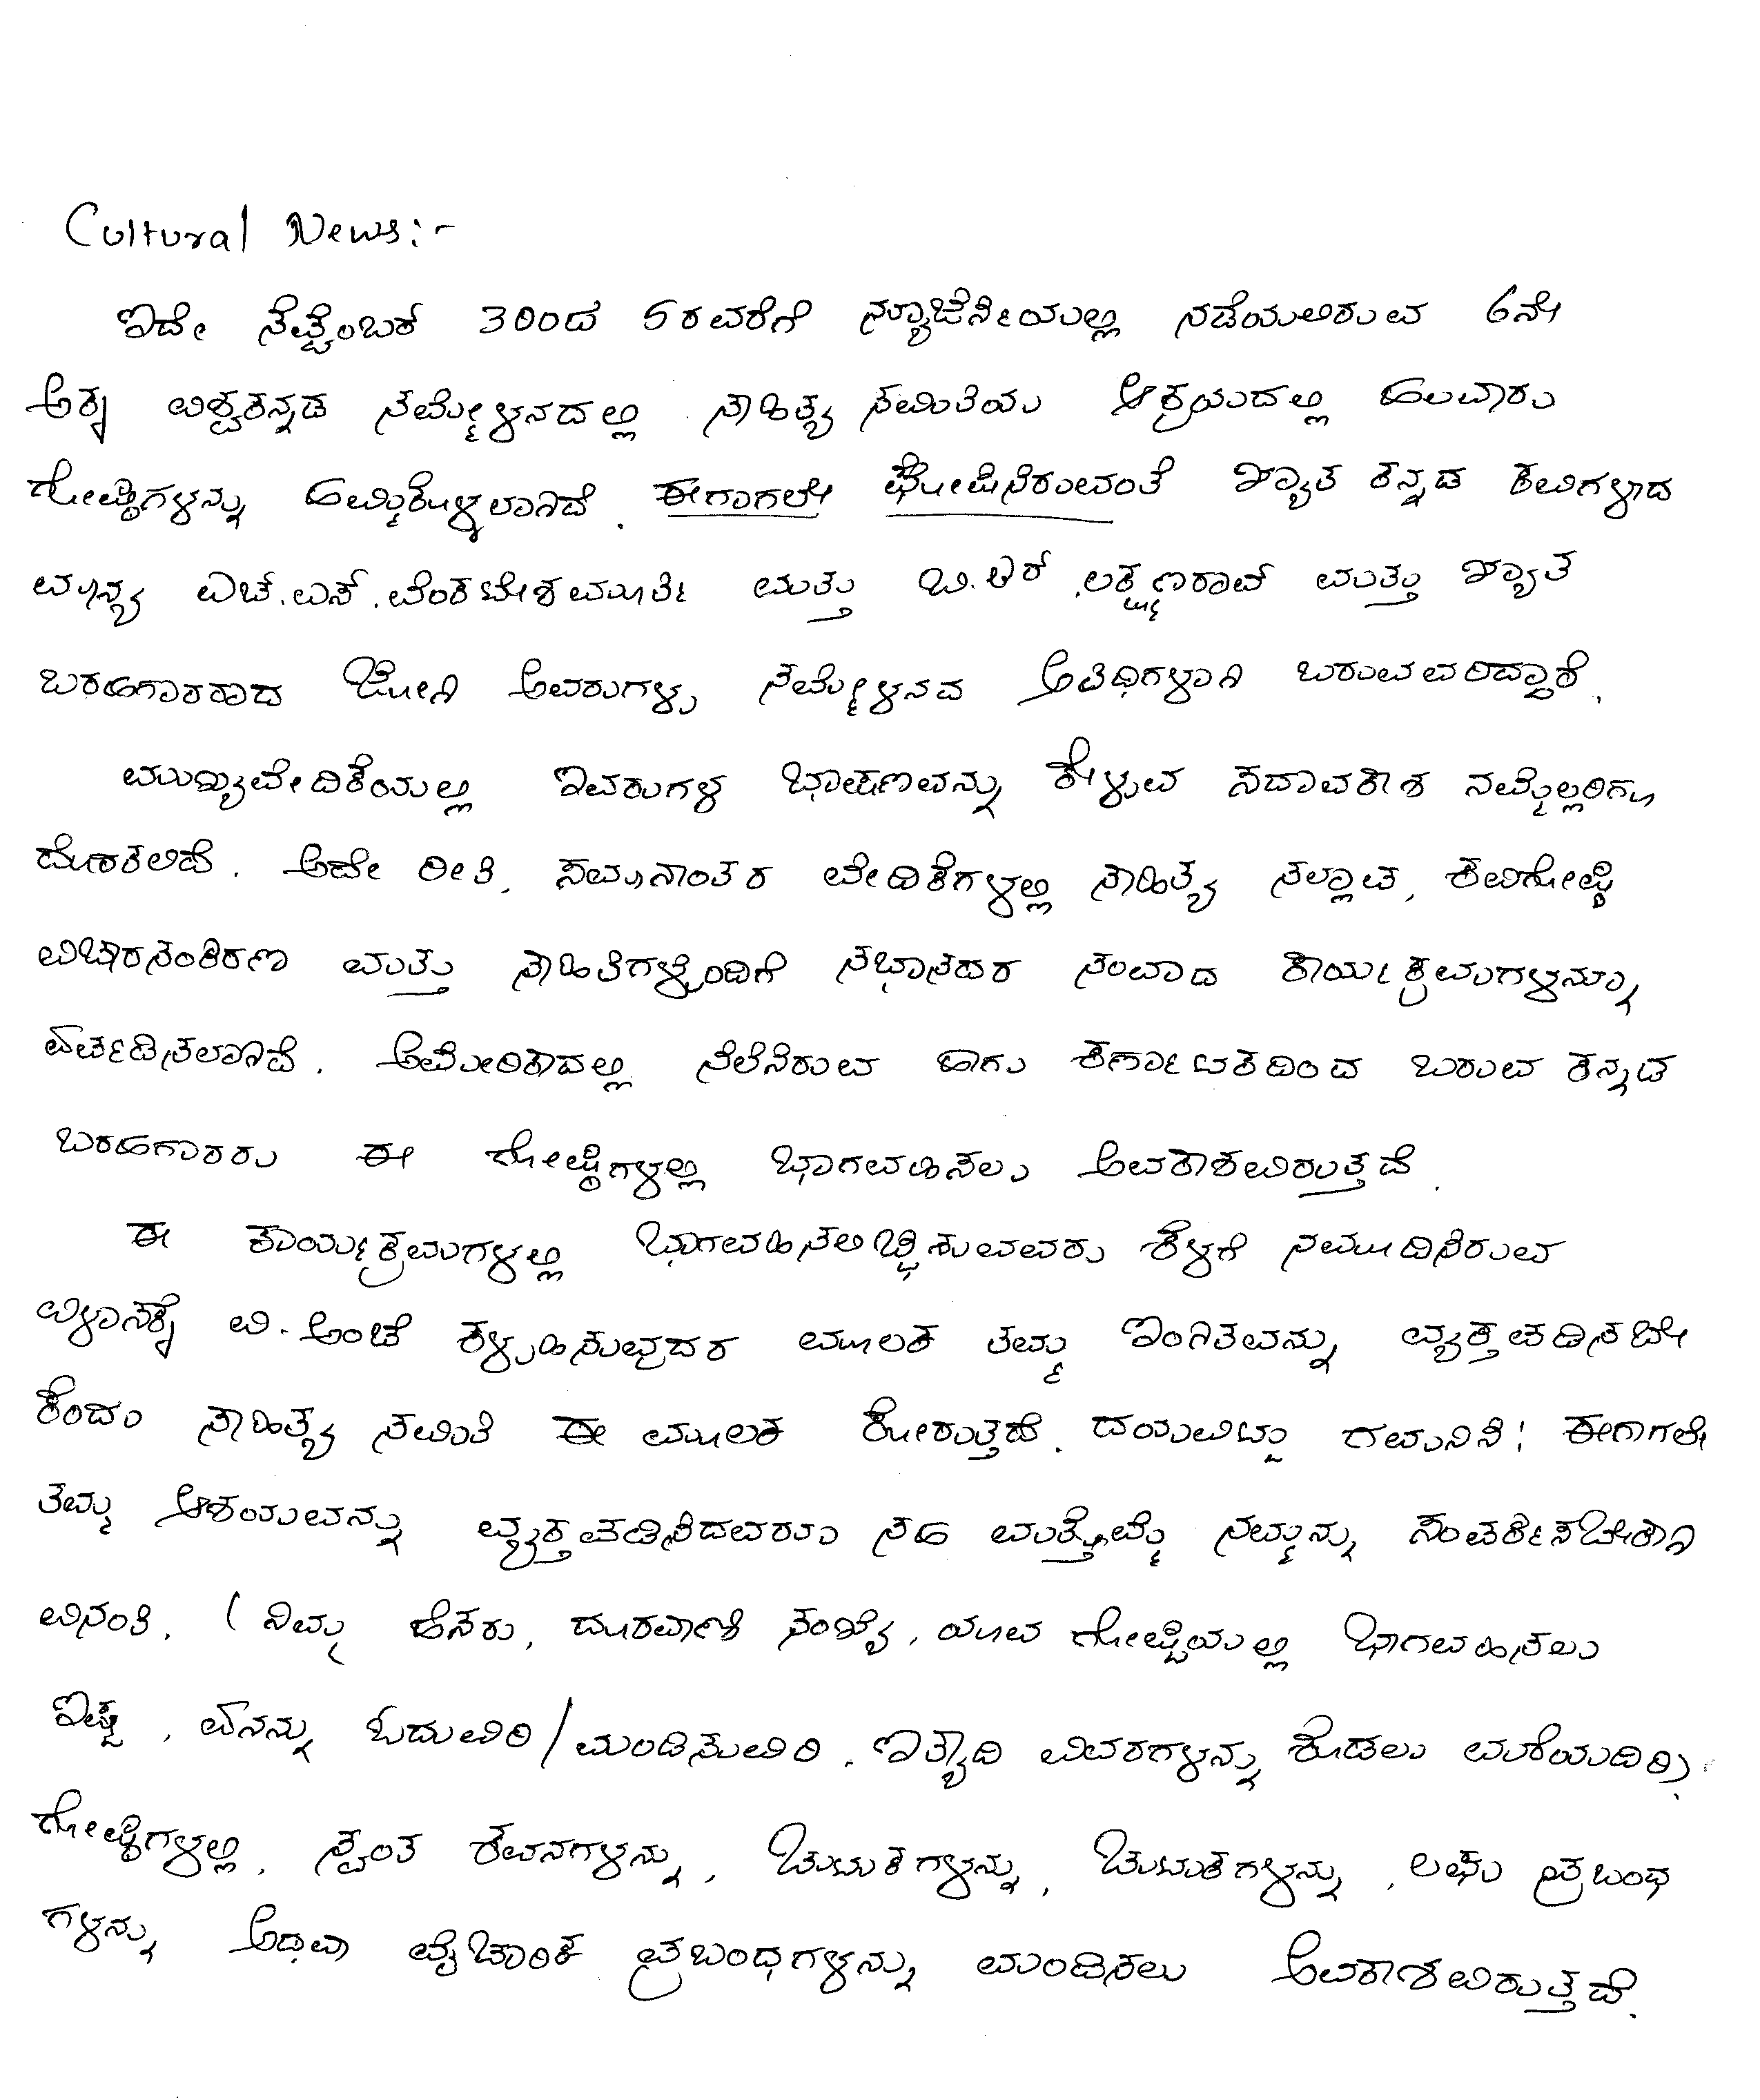 Cultural News:-
ಇದೇ ಸೆಪ್ಟೆಂಬರ್ 3ರಿಂದ 5ರವರೆಗೆ ನ್ಯೂಜೆರ್ಸಿಯಲ್ಲಿ ನಡೆಯಲಿರುವ 6ನೇ
ಅಕ್ಕ ವಿಶ್ವಕನ್ನಡ ಸಮ್ಮೇಳನದಲ್ಲಿ ಸಾಹಿತ್ಯ ಸಮಿತಿಯ ಆಶ್ರಯದಲ್ಲಿ ಹಲವಾರು
ಗೋಷ್ಠಿಗಳನ್ನು ಹಮ್ಮಿಕೊಳ್ಳಲಾಗಿದೆ. ಈಗಾಗಲೇ ಘೋಷಿಸಿರುವಂತೆ ಖ್ಯಾತ ಕನ್ನಡ ಕವಿಗಳಾದ
ಮಾನ್ಯ ಎಚ್.ಎಸ್.ವೆಂಕಟೇಶಮೂರ್ತಿ ಮತ್ತು ಬಿ.ಆರ್.ಲಕ್ಷ್ಮಣರಾವ್ ಮತ್ತು ಖ್ಯಾತ
ಬರಹಗಾರರಾದ ಜೋಗಿ ಅವರುಗಳು ಸಮ್ಮೇಳನದ ಅತಿಥಿಗಳಾಗಿ ಬರುವವರಿದ್ದಾರೆ.
ಮುಖ್ಯವೇದಿಕೆಯಲ್ಲಿ ಇವರುಗಳ ಭಾಷಣವನ್ನು ಕೇಳುವ ಸದಾವಕಾಶ ನಮ್ಮೆಲ್ಲರಿಗೂ
ದೊರಕಲಿದೆ. ಅದೇ ರೀತಿ, ಸಮಾನಾಂತರ ವೇದಿಕೆಗಳಲ್ಲಿ ಸಾಹಿತ್ಯ ಸಲ್ಲಾಪ, ಕವಿಗೋಷ್ಠಿ
ವಿಚಾರಸಂಕಿರಣ ಮತ್ತು ಸಾಹಿತಿಗಳೊಂದಿಗೆ ಸಭಾಸದರ ಸಂವಾದ ಕಾರ್ಯಕ್ರಮಗಳನ್ನೂ
ಏರ್ಪಡಿಸಲಾಗಿದೆ. ಅಮೇರಿಕಾದಲ್ಲಿ ನೆಲೆಸಿರುವ ಹಾಗು ಕರ್ನಾಟಕದಿಂದ ಬರುವ ಕನ್ನಡ
ಬರಹಗಾರರು ಈ ಗೋಷ್ಠಿಗಳಲ್ಲಿ ಭಾಗವಹಿಸಲು ಅವಕಾಶವಿರುತ್ತದೆ.
ಈ ಕಾರ್ಯಕ್ರಮಗಳಲ್ಲಿ ಭಾಗವಹಿಸಲಿಚ್ಛಿಸುವವರು ಕೆಳಗೆ ನಮೂದಿಸಿರುವ
ವಿಳಾಸಕ್ಕೆ ವಿ-ಅಂಚೆ ಕಳುಹಿಸುವುದರ ಮೂಲಕ ತಮ್ಮ ಇಂಗಿತವನ್ನು ವ್ಯಕ್ತಪಡಿಸಬೇ
ಕೆಂದು ಸಾಹಿತ್ಯ ಸಮಿತಿ ಈ ಮೂಲಕ ಕೋರುತ್ತದೆ. ದಯವಿಟ್ಟು ಗಮನಿಸಿ! ಈಗಾಗಲೇ
ತಮ್ಮ ಆಶಯವನ್ನು ವ್ಯಕ್ತಪಡಿಸಿದವರೂ ಸಹ ಮತ್ತೊಮ್ಮೆ ನಮ್ಮನ್ನು ಸಂಪರ್ಕಿಸಬೇಕಾಗಿ
ವಿನಂತಿ. (ನಿಮ್ಮ ಹೆಸರು, ದೂರವಾಣಿ ಸಂಖ್ಯೆ, ಯಾವ ಗೋಷ್ಟಿಯಲ್ಲಿ ಭಾಗವಹಿಸಲು
ಇಷ್ಟ, ಏನನ್ನು ಓದುವಿರಿ/ಮಂಡಿಸುವಿರಿ. ಇತ್ಯಾದಿ ವಿವರಗಳನ್ನು ಕೊಡಲು ಮರೆಯದಿರಿ).
ಗೋಷ್ಠಿಗಳಲ್ಲಿ, ಸ್ವಂತ ಕವನಗಳನ್ನು, ಚುಟುಕಗಳನ್ನು, ಚುಟುಕಗಳನ್ನು, ಲಘು ಪ್ರಬಂಧ
ಗಳನ್ನು ಅಥವಾ ವೈಚಾರಿಕ ಪ್ರಬಂಧಗಳನ್ನು ಮಂಡಿಸಲು ಅವಕಾಶವಿರುತ್ತದೆ.